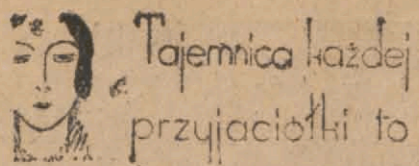 Tajemnica każdej
przyjaciółki to